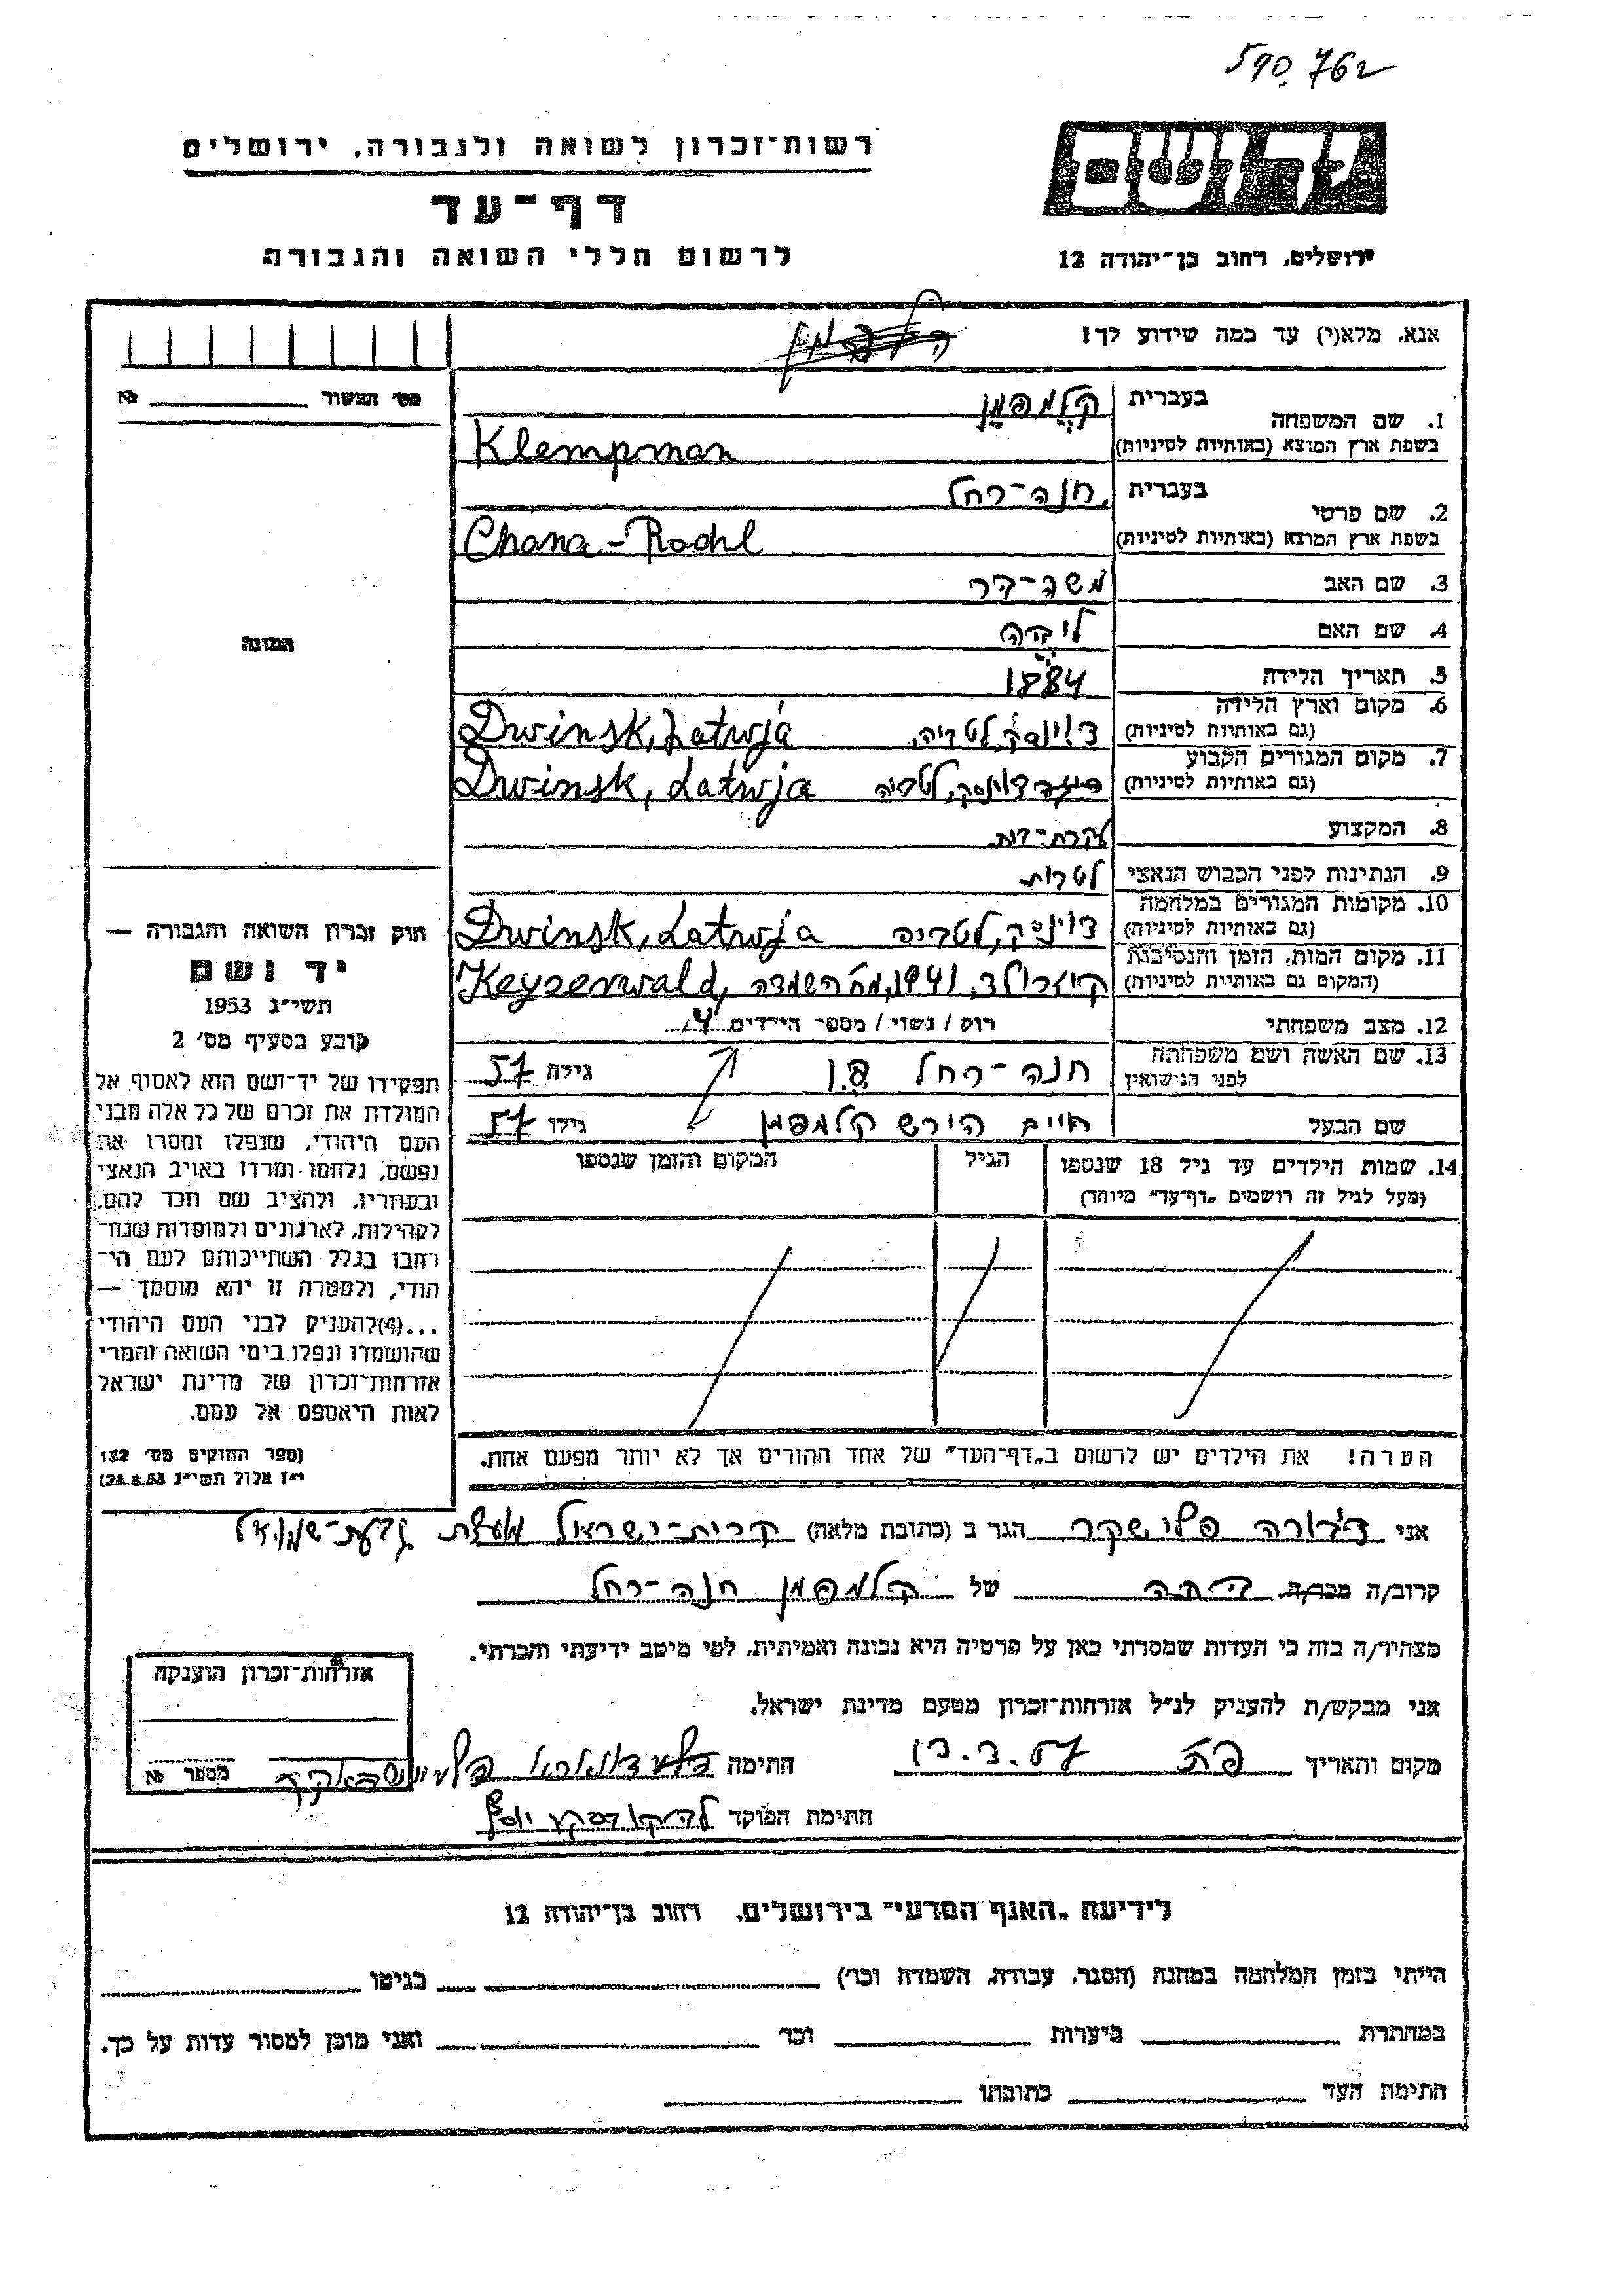 590.762
רשות־זכרון לשואה ולגבורה, ירושלים
דף־עד
לרשום חללי השואה והגבורה
ידושם
ירושלים, רחוב בן־יהודה 12
אנא, מלא(י) עד כמה שידוע לך!
מס' המשור № 
1. שם המשפחה
בעברית קלמפמן
בשפת ארץ המוצא (באותיות לטיניות) Klempman
2. שם פרטי
בעברית חנה-רחל
בשפת ארץ המוצא (באותיות לטיניות) Chana-Rochl
3. שם האב משה-
4. שם האם
5. תאריך הלידה 1884
6. מקום וארץ הלידה
(גם באותיות לטיניות) דוינסק, לטביה, Dwinsk, Latwja
7. מקום המגורים הקבוע
(גם באותיות לטיניות) דוינסק, לטביה Dwinsk, Latwja
8. המקצוע עקרת-בית
9. הנתינות לפני הכבוש הנאצי לטבית
10. מקומות המגורים במלחמה
(גם באותיות לטיניות) דוינסק, לטביה Dwinsk, Latwja
11. מקום המות, הזמן והנסיבות
(המקום גם באותיית לטיניות) קיזרולד, 1941, מח' השמדה Keyzerwald,
12. מצב משפחתי רוק / נשוי / מספר הילדים 4
13. שם האשה ושם משפחתה
לפני הנישואין חנה-רחל גילה 57
שם הבעל חיים הירש קלמפמן גילו 57
14. שמות הילדים עד גיל 18 שנספו הגיל המקום והזמן שנספו
(מעל לגיל זה רושמים „דף־עד” מיוחד)
הערה! את הילדים יש לרשום ב„דף־העד” של אחד ההורים אך לא יותר מפעם אחת.
התמונה
חוק זכרון השואה והגבורה —
יד ושם
תשי״ג 1953
קובע בסעיף מס' 2
תפקידו של יד־ושם הוא לאסוף אל
המולדת את זכרם של כל אלה מבני
העם היהודי, שנפלו ומסרו את
נפשם, נלחמו ומרדו באויב הנאצי
ובעוזריו, ולהציב שם וזכר להם,
לקהילות, לארגונים ולמוסדות שנח־
רבו בגלל השתייכותם לעם הי־
הודי, ולמטרה זו יהא מוסמך —
...(4)להעניק לבני העם היהודי
שהושמדו ונפלו בימי השואה והמרי
אזרחות־זכרון של מדינת ישראל
לאות היאספם אל עמם.
(ספר החוקים מס' 132
י״ז אלול תשי״ג 28.8.53)
אני דבורה פלישקר הגר ב (כתובת מלאה) קרית-ישראל גבעת-שמואל
קרוב/ה מכר/ה בתה של קלמפמן חנה-רחל
מצהיר/ה בזה כי העדות שמסרתי כאן על פרטיה היא נכונה ואמיתית, לפי מיטב ידיעתי והכרתי.
אני מבקש/ת להעניק לנ״ל אזרחות־זכרון מטעם מדינת ישראל.
מקום והאריך חתימה
חתימת הפוקד
אזרחות־זכרון הוענקה
מספר №
לידיעת „האגף המדעי” בירושלים, רחוב בן־יהודה 12
הייתי בזמן המלחמה במחנה (הסגר, עבודה, השמדה וכו') בגיטו
במחתרת ביערות וכו' ואני מוכן למסור עדות על כך.
חתימת העד כתובתו